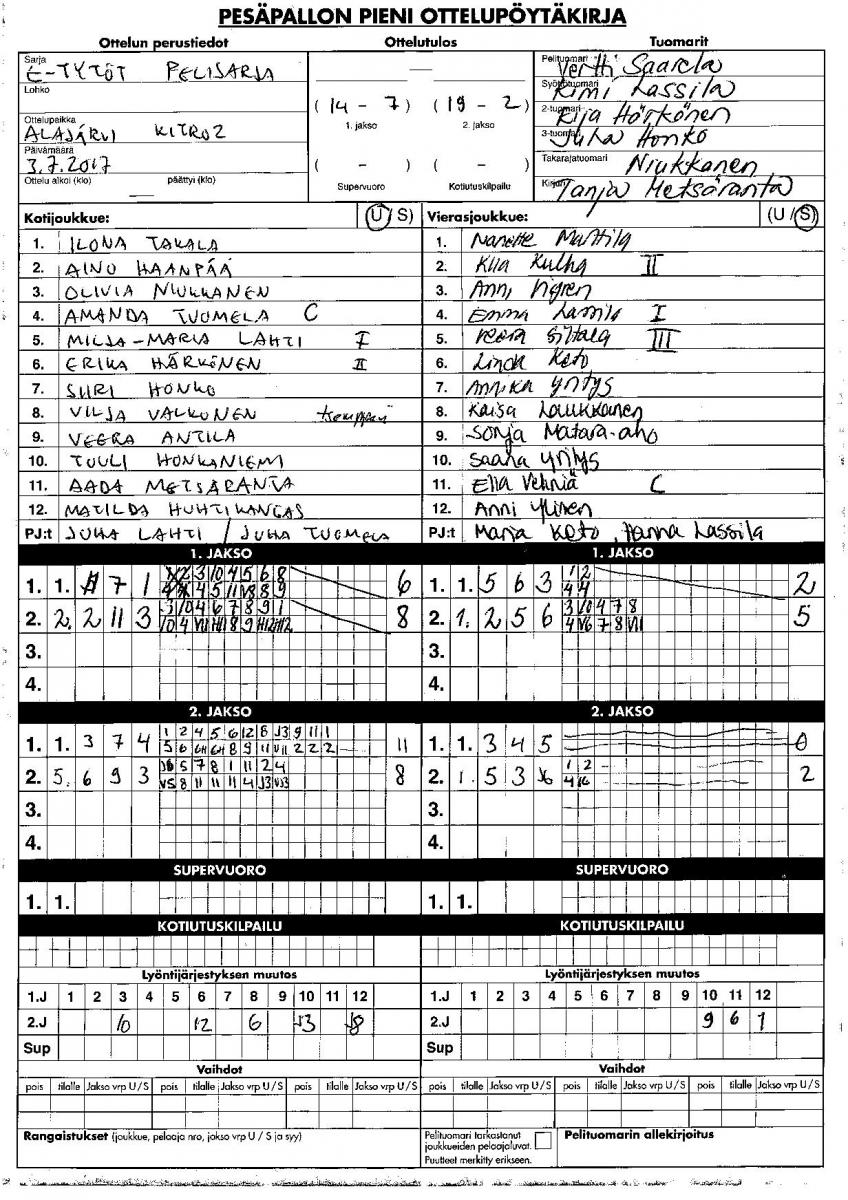 PESÄPALLON PIENI OTTELUPÖYTÄKIRJA
Ottelun perustiedot Ottelutulos Tuomarit
Sarja
E-TYTÖT PELISARJA
Lohko
Ottelupaikka
ALAJÄRVI KITRO2
Päivämäärä
3.7.2017
Ottelu alkoi (klo) päättyi (klo)
—
(14 - 7) (19 - 2)
1. jakso 2. jakso
( - ) ( - )
Supervuoro Kotiutuskilpailu
Pelituomari Vertti Saarela
Syöttötuomari Kimi Lassila
2-tuomari Härkönen
3-tuomari Juha Honko
Takarajatuomari Niukkanen
Kirjuri Tanja Metsäranta
Kotijoukkue: (U / S)
1. ILONA TAKALA
2. AINO HAANPÄÄ
3. OLIVIA NIUKKANEN
4. AMANDA TUOMELA C
5. MILJA-MARIA LAHTI I
6. ERIKA HÄRKÖNEN II
7. SIIRI HONKO
8. VILJA VALKONEN
9. VEERA ANTILA
10. TUULI HONKANIEMI
11. AADA METSÄRANTA
12. MATILDA HUHTIKANGAS
PJ:t JUHA LAHTI / JUHA TUOMELA
Vierasjoukkue: (U / S)
1. Nanette Marttila
2. Kiia Kulha II
3. Anni Vigren
4. Emma Lassila I
5. Siltala III
6. Linda Keto
7. Annika Yritys
8. Kaisa Laukkanen
9. Sonja Matara-aho
10. Saana Yritys
11. Ella Vehniä C
12. Anni Ylinen
PJ:t Marja Keto, Hanna Lassila
1. JAKSO 1. JAKSO
1. 1. 7 1 6
2. 2. 2 11 3 8
3.
4.
1. 1. 5 6 3 2
2. 1. 2 5 6 5
3.
4.
2. JAKSO 2. JAKSO
1. 1. 3 7 4 11
2. 5. 6 9 3 8
3.
4.
1. 1. 3 4 5 0
2. 1. 5 3 2
3.
4.
SUPERVUORO SUPERVUORO
1. 1. 1. 1.
KOTIUTUSKILPAILU KOTIUTUSKILPAILU
Lyöntijärjestyksen muutos Lyöntijärjestyksen muutos
1.J 1 2 3 4 5 6 7 8 9 10 11 12 1.J 1 2 3 4 5 6 7 8 9 10 11 12
2.J 10 12 6 J3 2.J 9 6 1
Sup Sup
Vaihdot Vaihdot
pois tilalle Jakso vrp U / S pois tilalle Jakso vrp U / S pois tilalle Jakso vrp U / S pois tilalle Jakso vrp U / S pois tilalle Jakso vrp U / S pois tilalle Jakso vrp U / S
Rangaistukset (joukkue, pelaaja nro, jakso vrp U / S ja syy)
Pelituomari tarkastanut
joukkueiden pelaajaluvat.
Puutteet merkitty erikseen.
Pelituomarin allekirjoitus